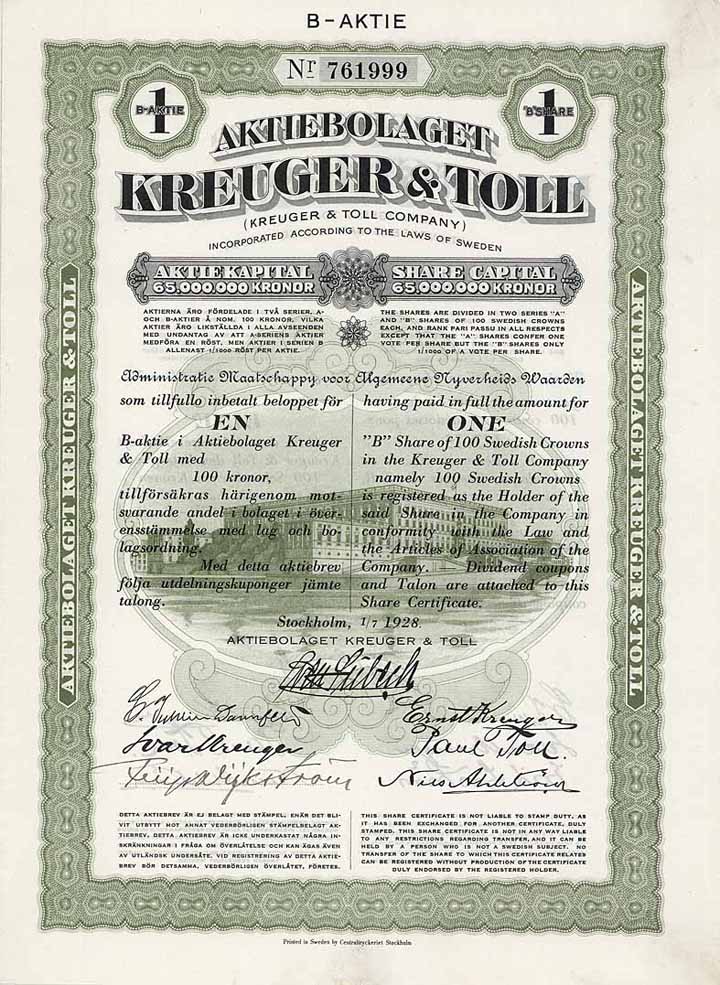 B-AKTIE
Nr 761999
1
B-AKTIE
1
"B" SHARE
AKTIEBOLAGET
KREUGER & TOLL
(KREUGER & TOLL COMPANY)
INCORPORATED ACCORDING TO THE LAWS OF SWEDEN
AKTIEKAPITAL
65.000.000 KRONOR
SHARE CAPITAL
65.000.000 KRONOR
AKTIERNA ÄRO FÖRDELADE I TVÅ SERIER, A-
OCH B-AKTIER Å NOM. 100 KRONOR, VILKA
AKTIER ÄRO LIKSTÄLLDA I ALLA AVSEENDEN
MED UNDANTAG AV ATT A-SERIENS AKTIER
MEDFÖRA EN RÖST, MEN AKTIER I SERIEN B
ALLENAST 1/1000 RÖST PER AKTIE.
THE SHARES ARE DIVIDED IN TWO SERIES "A"
AND "B" SHARES OF 100 SWEDISH CROWNS
EACH, AND RANK PARI PASSU IN ALL RESPECTS
EXCEPT THAT THE "A" SHARES CONFER ONE
VOTE PER SHARE BUT THE "B" SHARES ONLY
1/1000 OF A VOTE PER SHARE.
Administratie Maatschappy voor Algemeene Nyverheids Waarden
som tillfullo inbetalt beloppet för
EN
B-aktie i Aktiebolaget Kreuger
& Toll med
100 kronor,
tillförsäkras härigenom mot-
svarande andel i bolaget i över-
ensstämmelse med lag och bo-
lagsordning.
Med detta aktiebrev
följa utdelningskuponger jämte
talong.
having paid in full the amount for
ONE
"B" Share of 100 Swedish Crowns
in the Kreuger & Toll Company
namely 100 Swedish Crowns
is registered as the Holder of the
said Share in the Company in
conformity with the Law and
the Articles of Association of the
Company. — Dividend coupons
and Talon are attached to this
Share Certificate.
Stockholm, 1/7 1928.
AKTIEBOLAGET KREUGER & TOLL
Ernst Kreuger
Ivar Kreuger
Paul Toll.
Nils Ahlström
DETTA AKTIEBREV ÄR EJ BELAGT MED STÄMPEL, ENÄR DET BLI-
VIT UTBYTT MOT ANNAT VEDERBÖRLIGEN STÄMPELBELAGT AK-
TIEBREV. DETTA AKTIEBREV ÄR ICKE UNDERKASTAT NÅGRA IN-
SKRÄNKNINGAR I FRÅGA OM ÖVERLÅTELSE OCH KAN ÄGAS ÄVEN
AV UTLÄNDSK UNDERSÅTE. VID REGISTRERING AV DETTA AKTIE-
BREV BÖR DETSAMMA, VEDERBÖRLIGEN ÖVERLÅTET, FÖRETES.
THIS SHARE CERTIFICATE IS NOT LIABLE TO STAMP DUTY, AS
IT HAS BEEN EXCHANGED FOR ANOTHER CERTIFICATE, DULY
STAMPED. THIS SHARE CERTIFICATE IS NOT IN ANY WAY LIABLE
TO ANY RESTRICTIONS REGARDING TRANSFER, AND IT CAN BE
HELD BY A PERSON WHO IS NOT A SWEDISH SUBJECT. NO
TRANSFER OF THE SHARE TO WHICH THIS CERTIFICATE RELATES
CAN BE REGISTERED WITHOUT PRODUCTION OF THE CERTIFICATE
DULY ENDORSED BY THE REGISTERED HOLDER.
AKTIEBOLAGET KREUGER & TOLL
AKTIEBOLAGET KREUGER & TOLL
Printed in Sweden by Centraltryckeriet Stockholm